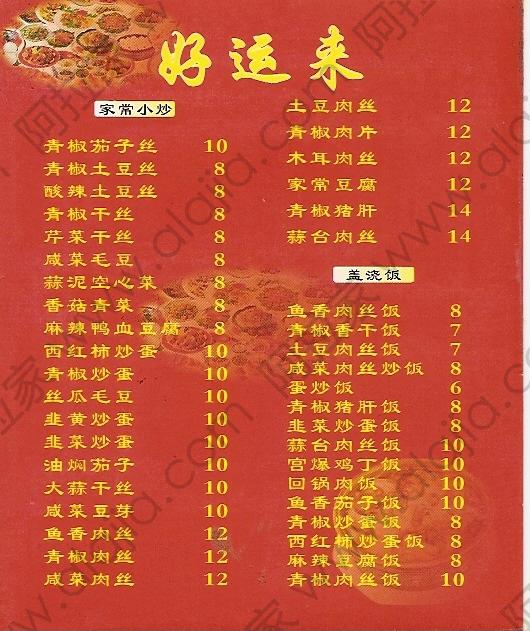 好运来
家常小炒
青椒茄子丝 10
青椒土豆丝 8
酸辣土豆丝 8
青椒干丝 8
芹菜干丝 8
咸菜毛豆 8
蒜泥空心菜 8
香菇青菜 8
麻辣鸭血豆腐 8
西红柿炒蛋 10
青椒炒蛋 10
丝瓜毛豆 10
韭黄炒蛋 10
韭菜炒蛋 10
油焖茄子 10
大蒜干丝 10
咸菜豆芽 10
鱼香肉丝 12
青椒肉丝 12
咸菜肉丝 12
土豆肉丝 12
青椒肉片 12
木耳肉丝 12
家常豆腐 12
青椒猪肝 14
蒜台肉丝 14
盖浇饭
鱼香肉丝饭 8
青椒香干饭 7
土豆肉丝饭 7
咸菜肉丝炒饭 8
蛋炒饭 6
青椒猪肝饭 8
韭菜炒蛋饭 8
蒜台肉丝饭 10
宫爆鸡丁饭 10
回锅肉饭 10
鱼香茄子饭 10
青椒炒蛋饭 8
西红柿炒蛋饭 8
麻辣豆腐饭 8
青椒肉丝饭 10
阿拉家 www.alajia.com